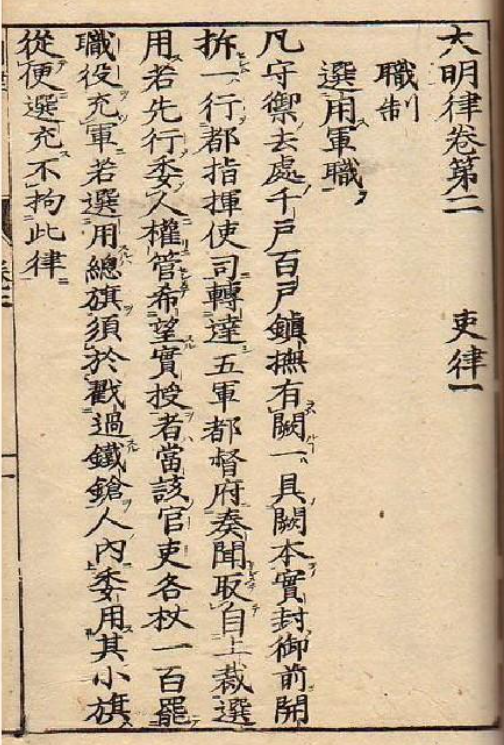 大明律卷第二　吏律一
職制
選用軍職
凡守禦去處千戸百戸鎮撫有闕一具闕本實封御前開
拆一行都指揮使司轉達五軍都督府奏聞取自上裁選
用若先行委人權管希望實授者當該官吏各杖一百罷
職役充軍若選用總旗須於戳過鐵鎗人內委用其小旗
從便選充不拘此律